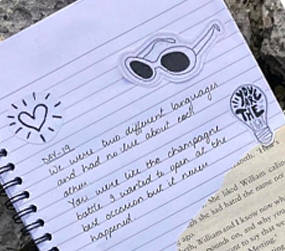 DAY-19
We were two different languages
and had no clue about each
other.
You were like the champagne
bottle I wanted to open at the
best occasion but it never
happened.
YOU
ARE
THE
liked William
she had hated the name
William and I know now wh
on, and why you